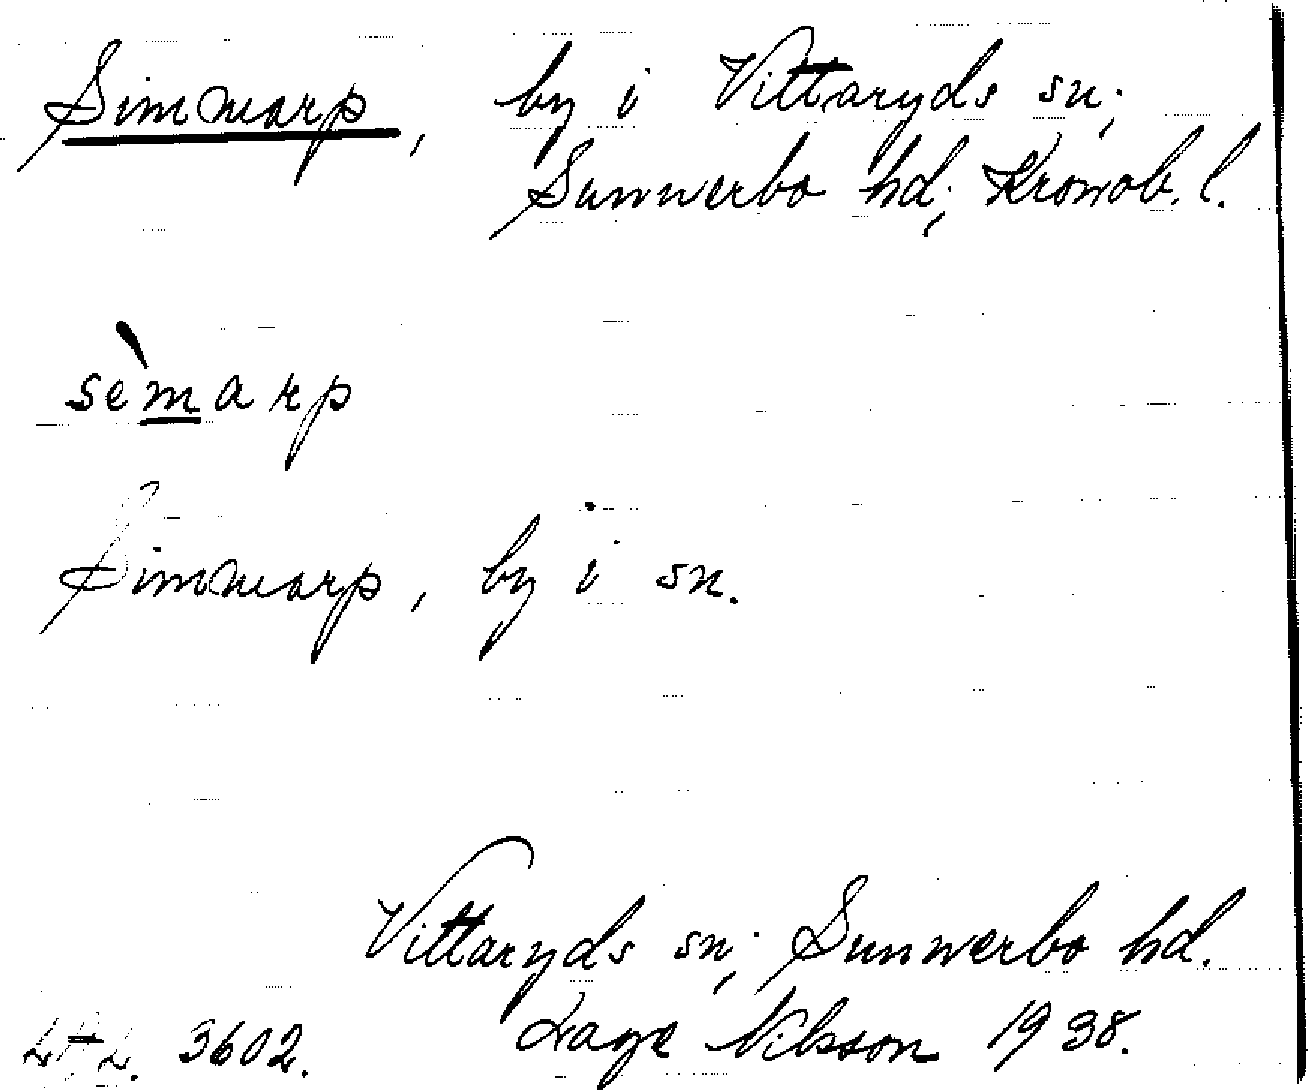 Simmarp, by i Vittaryds sn;
Sunnerbo hd; Kronob. l.
sèmarp
Simmarp, by i sn.
Vittaryds sn; Sunnerbo hd.
3602. Tage Nilsson 1938.